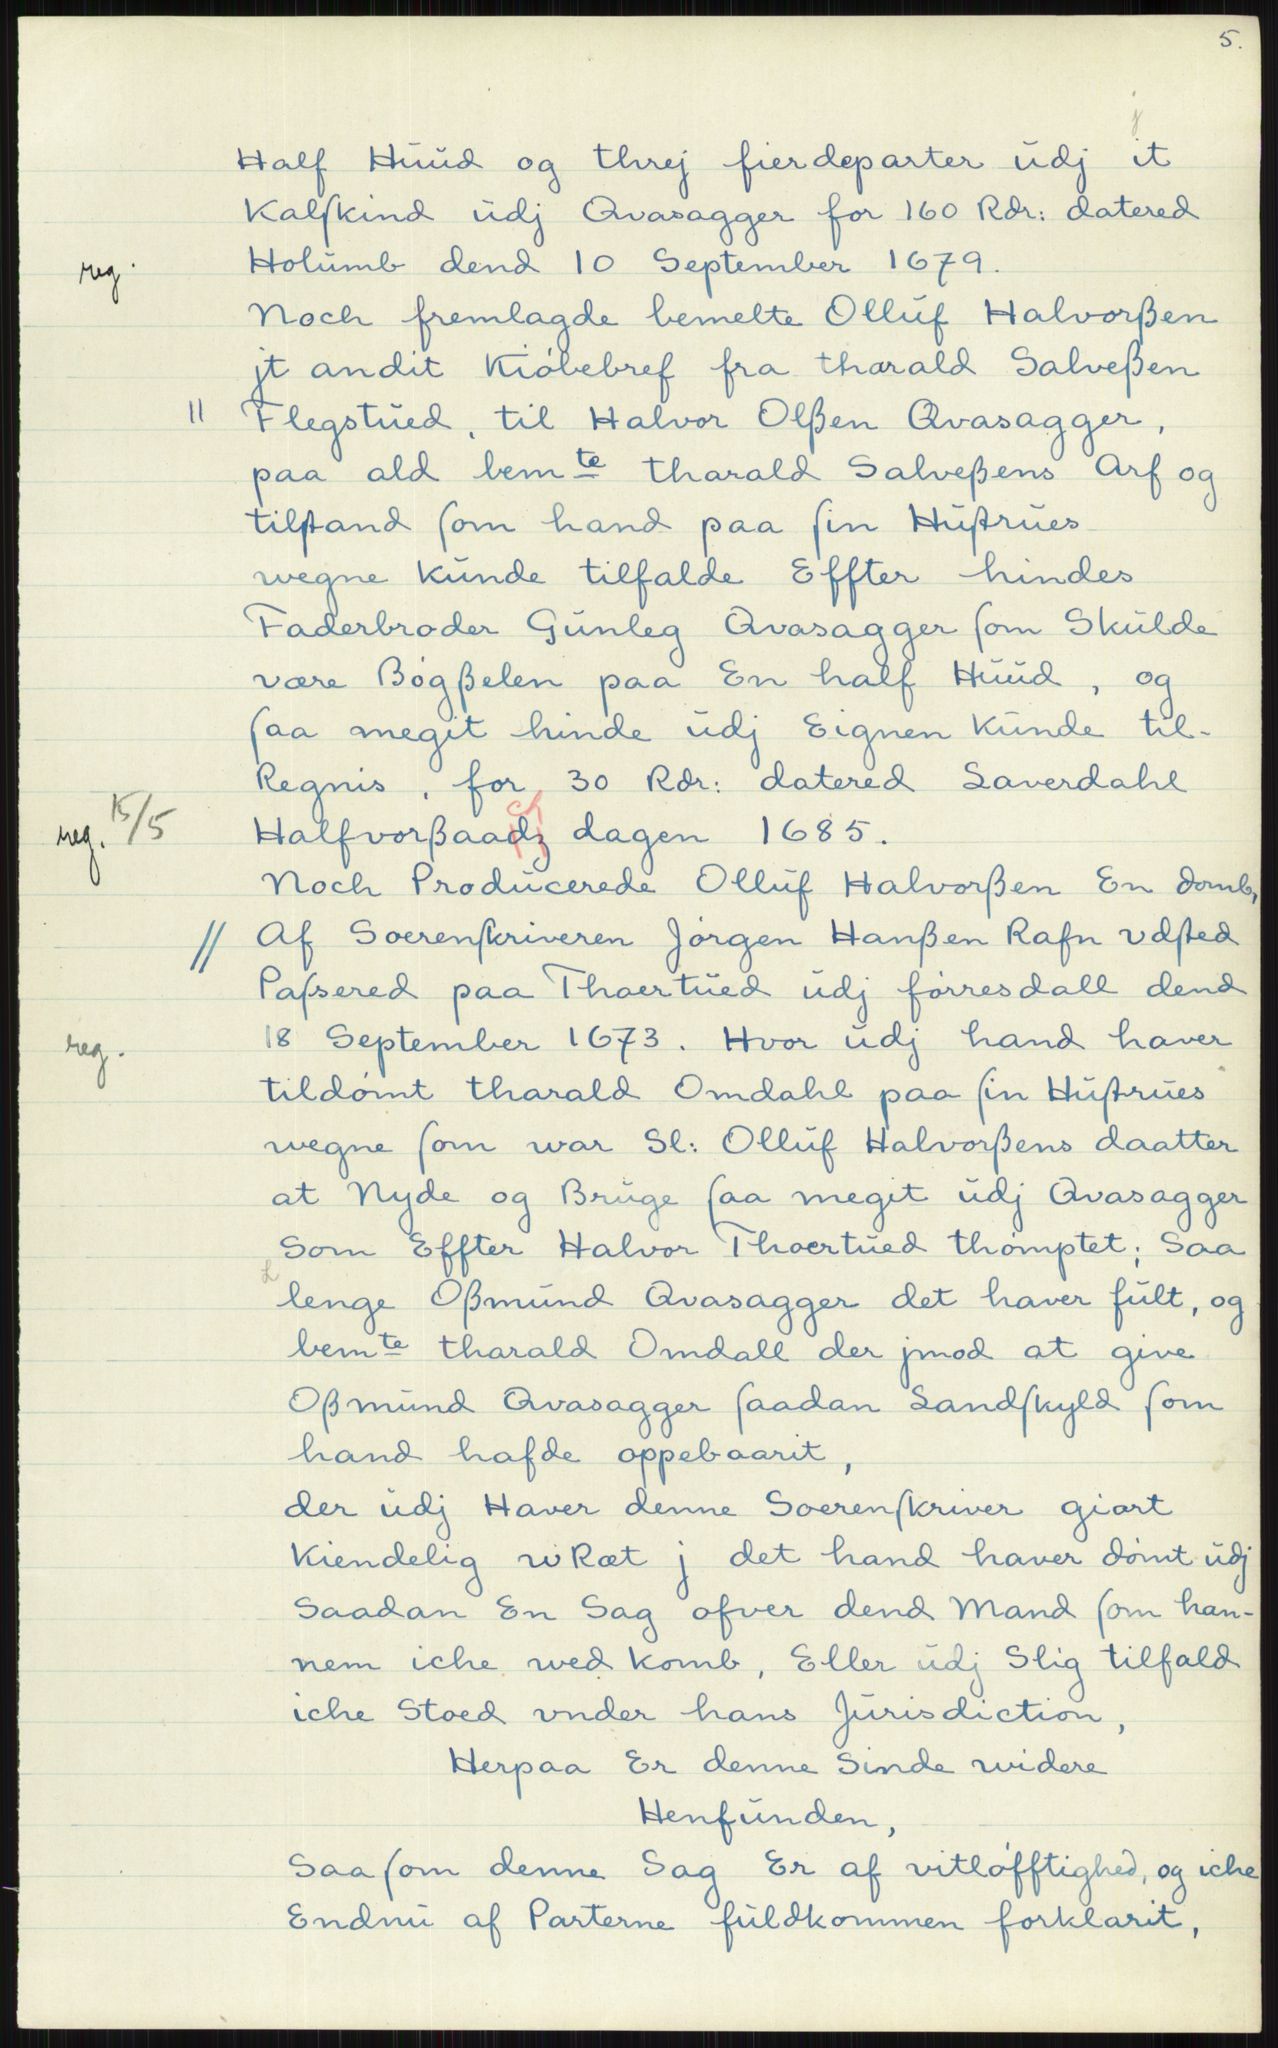 5.
j
Half Huud og threj fierdeparter udj it
Kalſkind udj Qvasagger for 160 Rdr: datered
reg. Holumb dend 10 September 1679.
Noch fremlagde bemelte Olluf Halvorßen
jt andit Kiöbebref fra tharald Salveßen
" Flegstued, til Halvor Olßen Qvasagger,
paa ald bemte tharald Salveßens Arf og
tilſtand ſom hand paa ſin Huſtrues
wegne kunde tilfalde Effter hindes
Faderbroder Gunleg Qvasagger ſom Skulde
være Bögßelen paa En half Huud, og
ſaa megit hinde udj Eignen kunde til-
Regnis, for 30 Rdr: datered Laverdahl
reg. 15/5 Halfvorßaadz dagen 1685.
Noch Producerede Olluf Halvorßen En domb,
// Af Soerenſkriveren Jörgen Hanßen Rafn vdſted
Paſsered paa Thoertued udj förresdall dend
reg. 18 September 1673. Hvor udj hand haver
tildömt tharald Omdahl paa ſin Huſtrues
wegne ſom war Sl: Olluf Halvorßens daatter
at Nyde og Bruge ſaa megit udj Qvasagger
Som Effter Halvor Thoertued thömptet; Saa
L
lenge Oßmund Qvasagger det haver fult, og
bemte tharald Omdall der jmod at give
Oßmund Qvasagger ſaadan Landſkyld ſom
hand hafde oppebaarit,
der udj Haver denne Soerenſkriver giort
Kiendelig wRæt j det hand haver dömt udj
Saadan En Sag ofver dend Mand ſom han-
nem iche wed komb, Eller udj Slig tilfald
iche Stoed vnder hans Jurisdiction,
Herpaa Er denne Sinde widere
Henfunden,
Saa ſom denne Sag Er af vitlöfftighed, og iche
Endnu af Parterne fuldkommen forklarit,